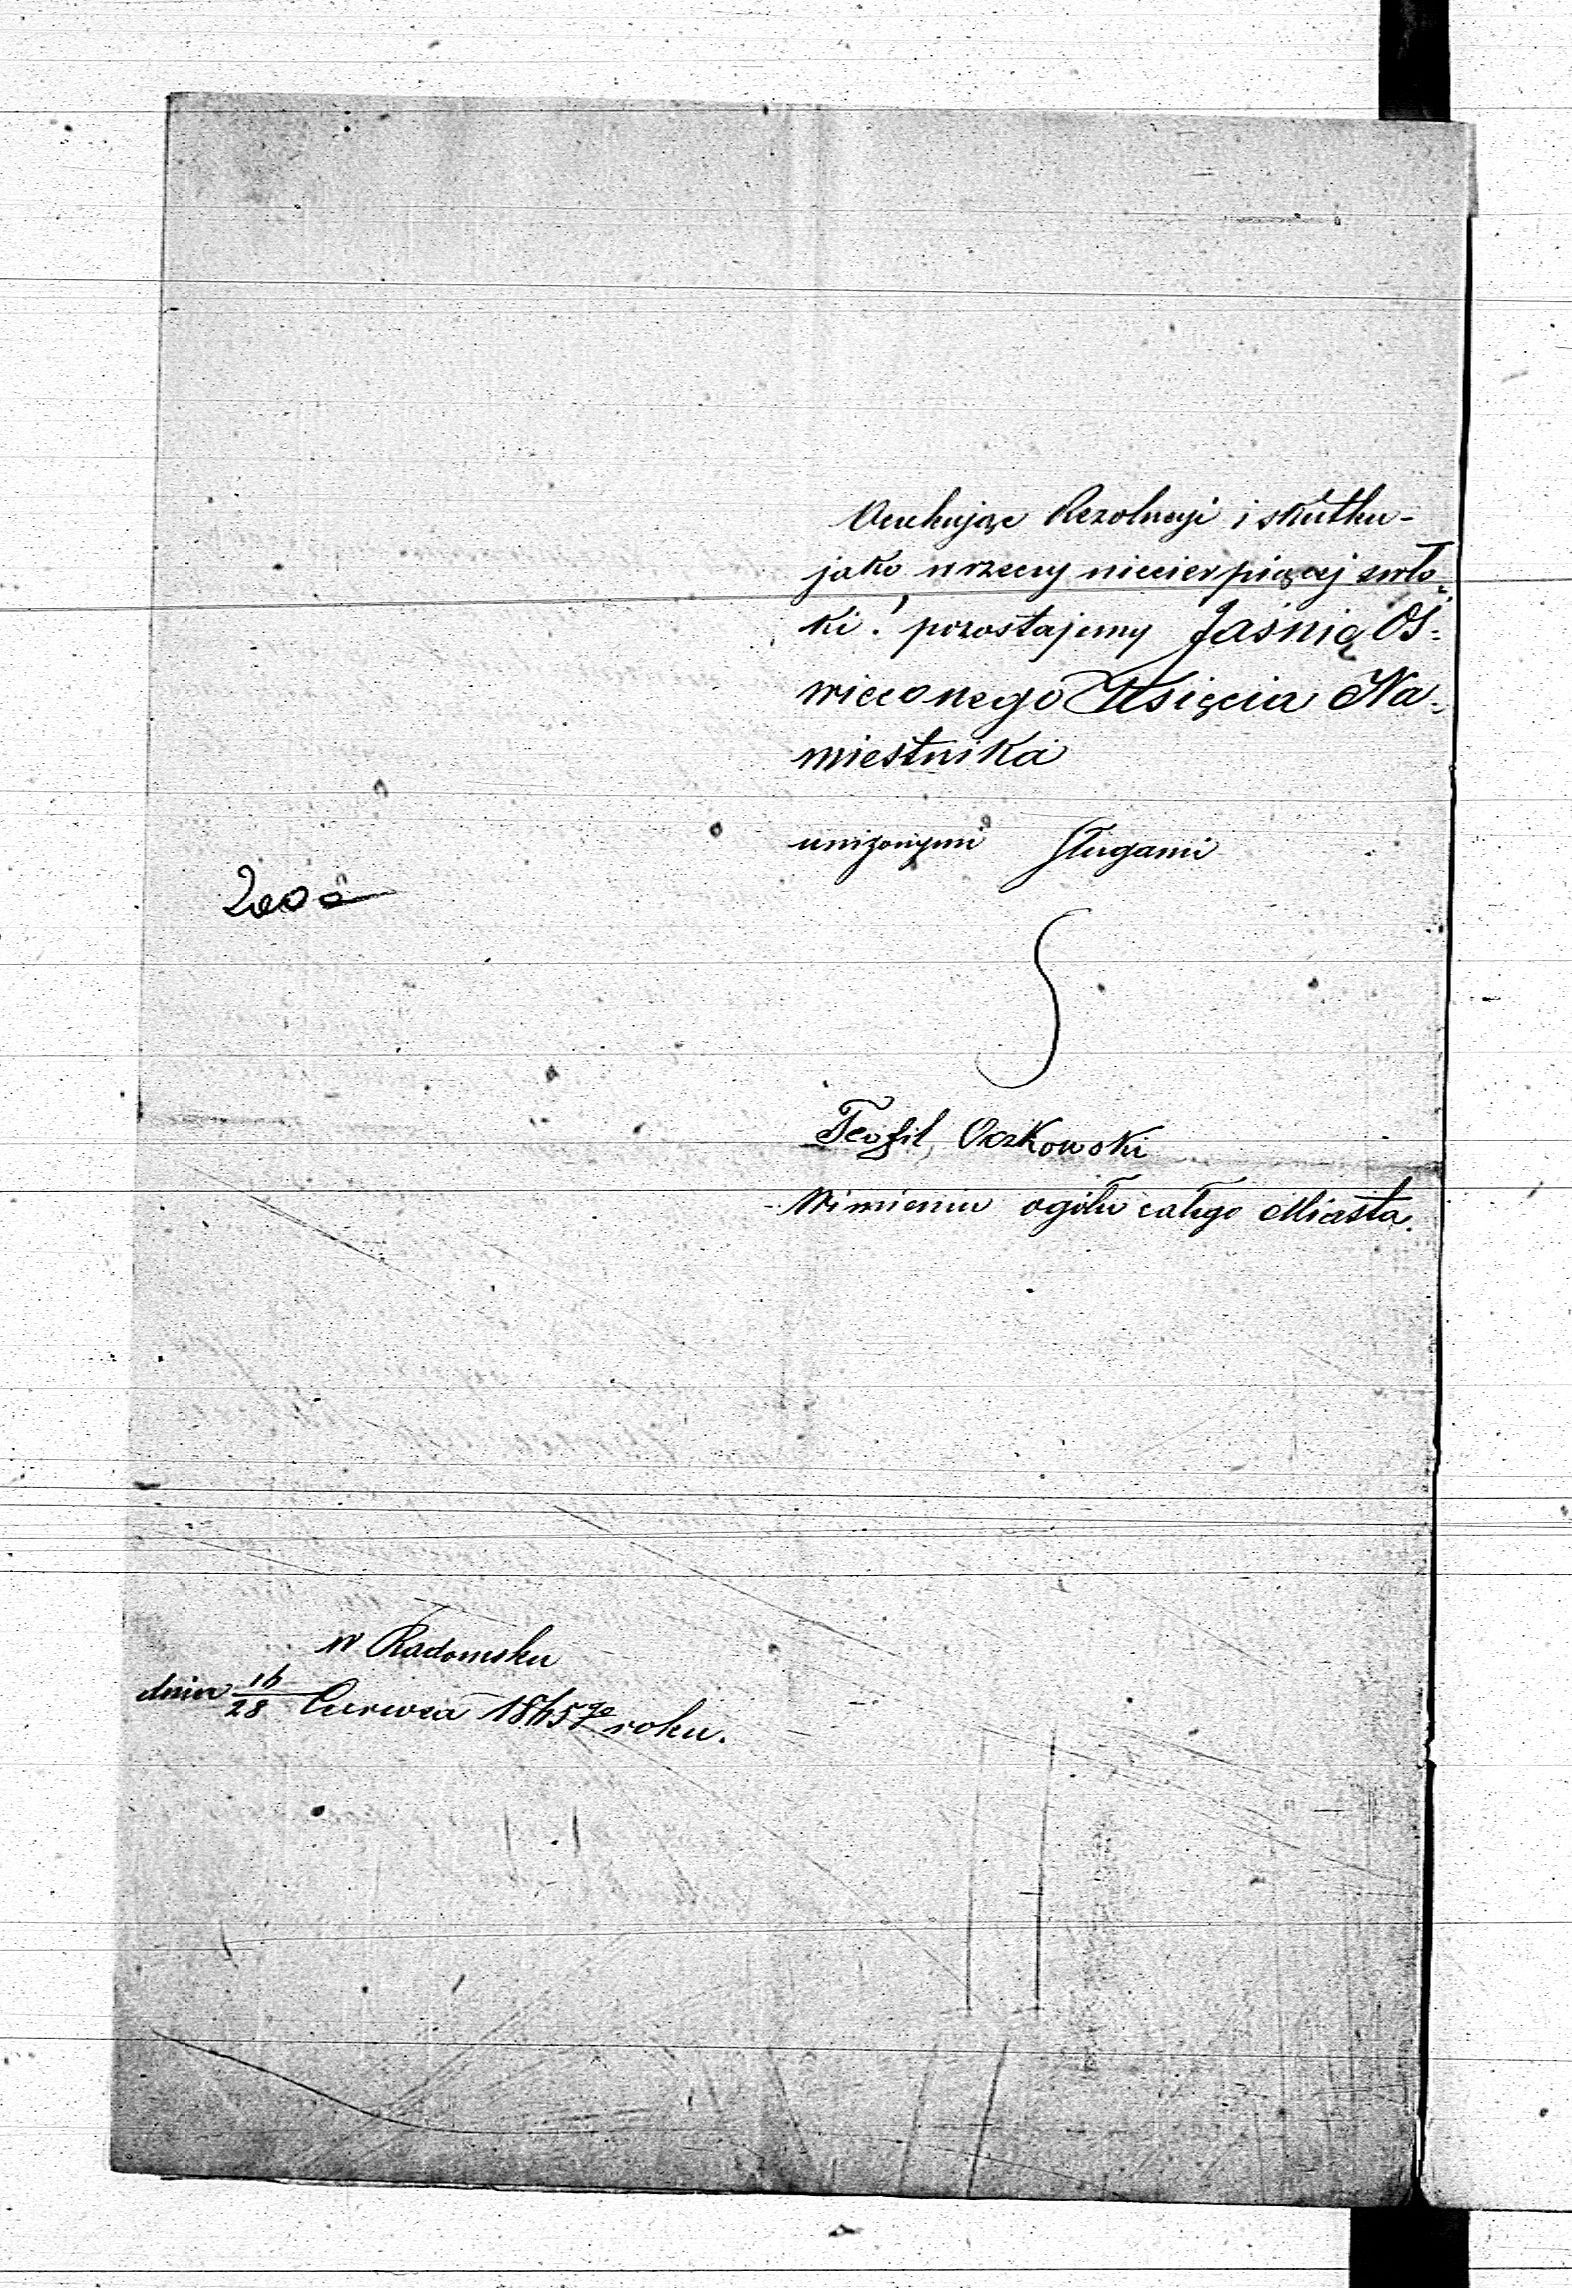 Oczekując Rezolucyi i skutku-
jako w rzeczy niecierpiącej zwło-
ki! pozostajemy Jaśnię Oś-
wieconego Księcia Na-
miestnika
uniżonymi sługami
Teofil, Oczkowski
W imieniu ogółu całego Miasta.
w Radomsku
dnia 16/28 Czerwca 1865go roku.